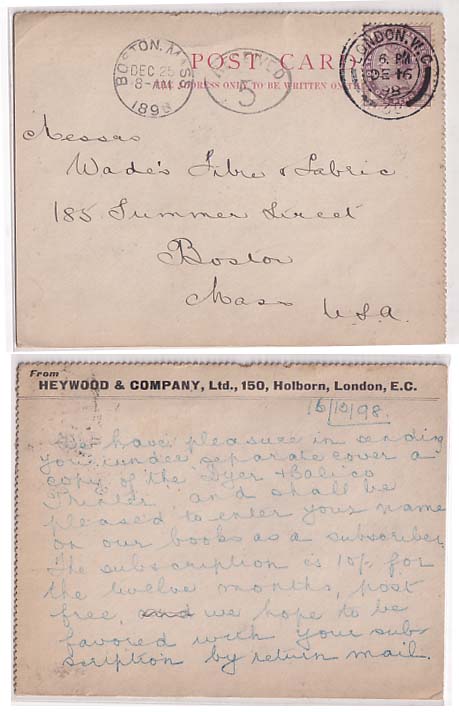 BOSTON, MASS
DEC 25
8-AM
1898
5
POST CARD
ADDRESS ONLY TO BE WRITTEN ON THIS
LONDON. W.C.
6. PM
DE 16
98
Messrs
Wade's Fibre & Fabric
185 Summer Street
Boston
Mass
U.S.A.
From
HEYWOOD & COMPANY, Ltd., 150, Holborn, London, E.C.
98.
We have pleasure in sending
you under separate cover a
copy of the Dyer & Calico
Printer, and shall be
pleased to enter your name
on our books as a subscriber.
The subscription is 10/- for
the twelve months, post
free, and we hope to be
favored with your sub-
scription by return mail.